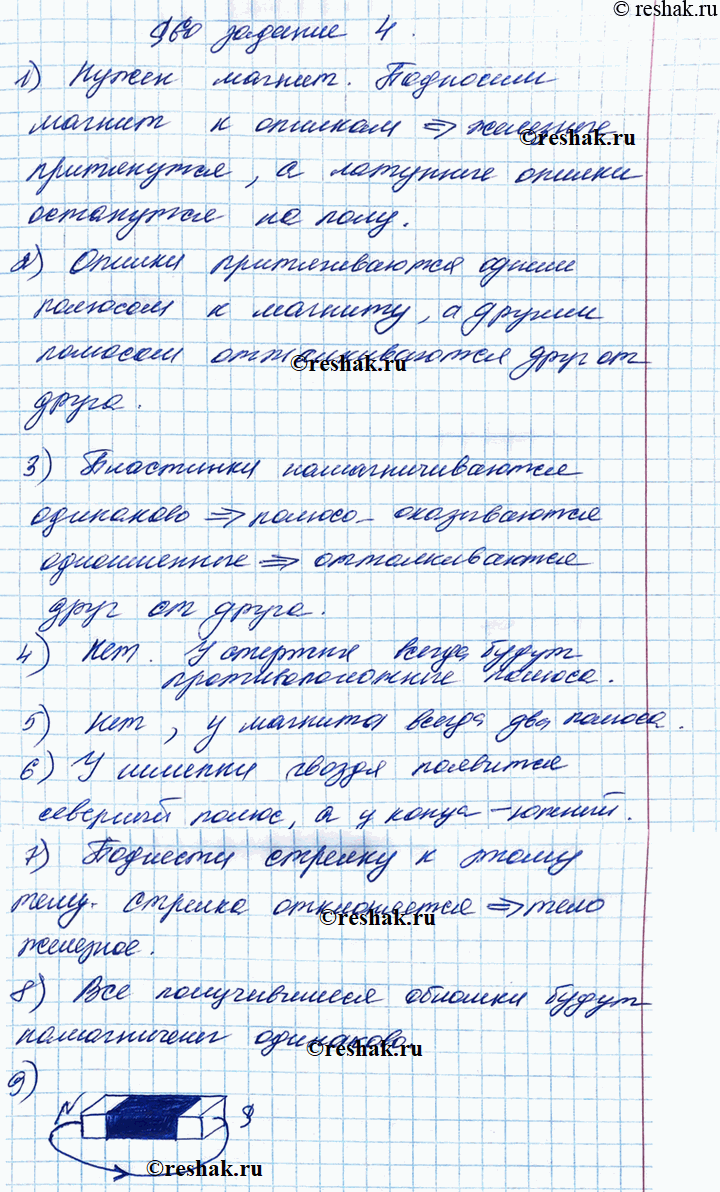 © reshak.ru
§60 задание 4.
1) Нужен магнит. Подносим
магнит к опилкам ⇒ железные
©reshak.ru
притянутся, а латунные опилки
останутся на полу.
2) Опилки притягиваются одним
полюсом к магниту, а другим
полюсом отталкиваются друг от
©reshak.ru
друга.
3) Пластинки намагничиваются
одинаково ⇒ полюса оказываются
одноименные ⇒ отталкиваются
друг от друга.
4) Нет. У стержня всегда будут
противоположные полюса.
5) Нет, у магнита всегда два полюса.
6) У шляпки гвоздя появится
северный полюс, а у конца - южный.
7) Поднести стрелку к этому
телу. Стрелка отклоняется ⇒ тело
©reshak.ru
железное.
8) Все получившиеся обломки будут
намагничены одинаково.
©reshak.ru
9)
N S
©reshak.ru